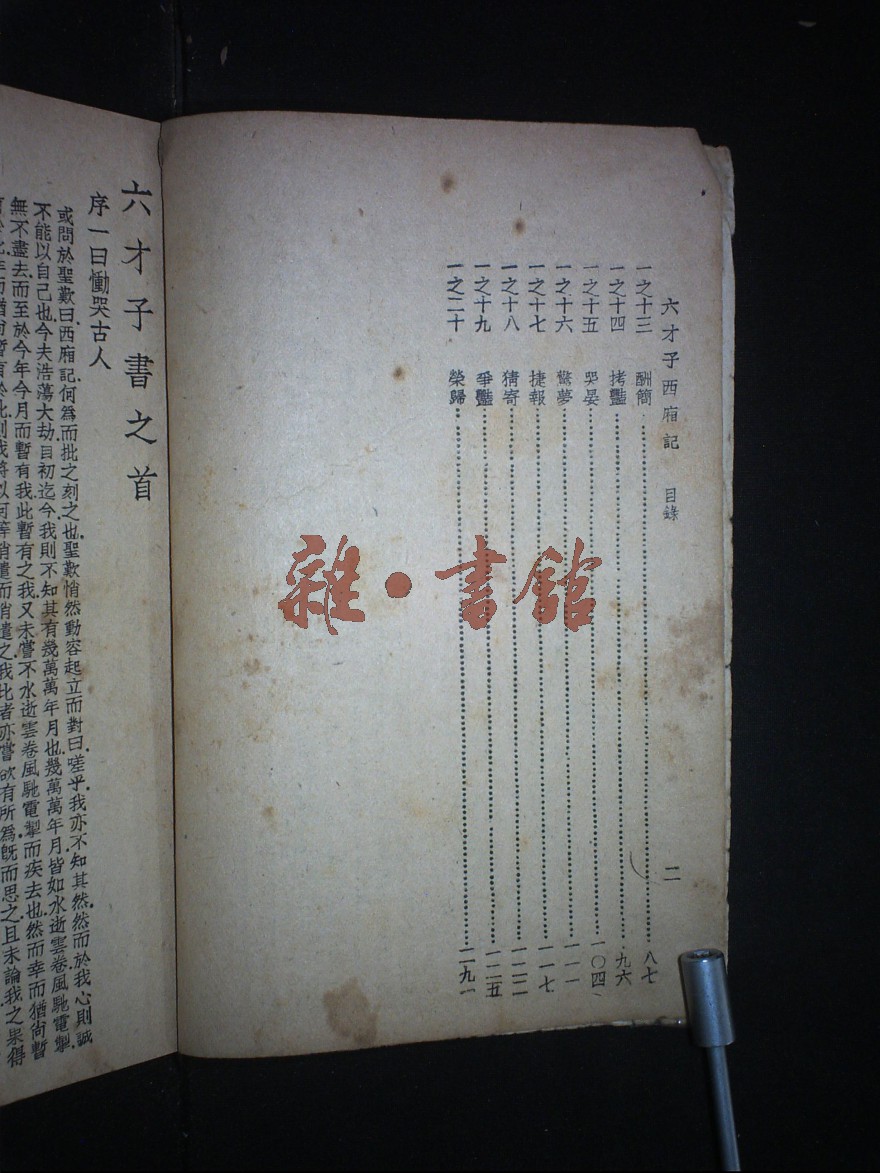 六才子西廂記　目錄　二
一之十三　酬簡　八七
一之十四　拷豔　九六
一之十五　哭晏　一〇四
一之十六　驚夢　一一一
一之十七　捷報　一一七
一之十八　猜寄　一二二
一之十九　爭豔　一二五
一之二十　榮歸　一二九
雜·書館
六才子書之首
序一曰慟哭古人
或問於聖歎曰.西廂記.何爲而批之刻之也.聖歎悄然動容起立而對曰.嗟乎.我亦不知其然.然而於我心則誠
不能以自已也.今夫浩蕩大劫.自初迄今.我則不知其有幾萬萬年月也.幾萬萬年月皆如水逝雲卷風馳電掣.
無不盡去.而至於今年今月而暫有我.此暫有之我.又未嘗不水逝雲卷風馳電掣而疾去也.然而幸而猶尚暫